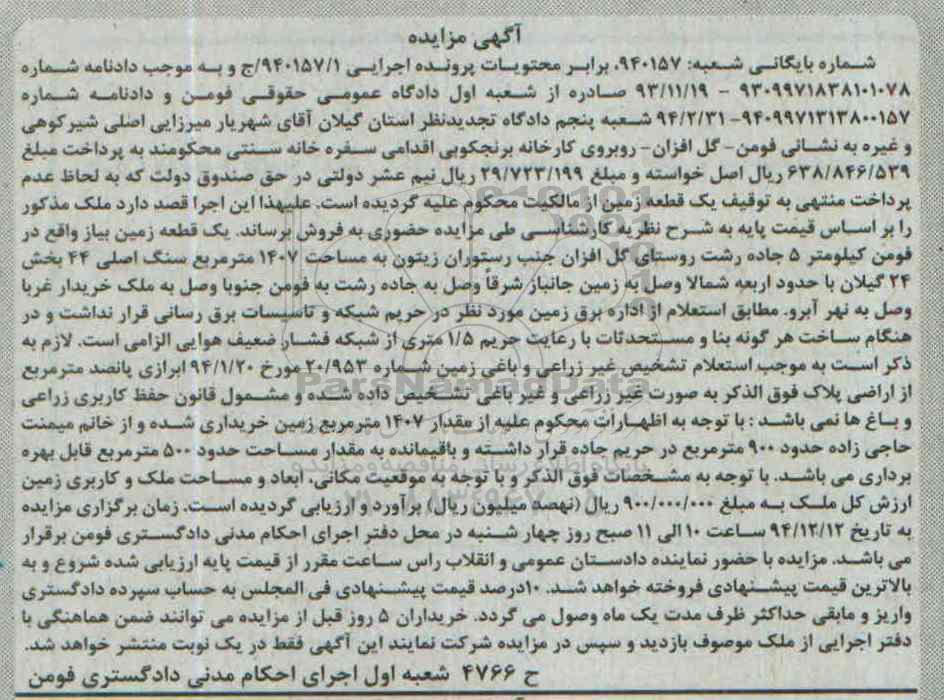 آگهی مزایده
شماره بایگانی شعبه: ۹۴۰۱۵۷، برابر محتویات پرونده اجرایی ۹۴۰۱۵۷/۱/ج و به موجب دادنامه شماره
۹۳۰۹۹۷۱۸۳۸۱۰۱۰۷۸ - ۹۳/۱۱/۱۹ صادره از شعبه اول دادگاه عمومی حقوقی فومن و دادنامه شماره
۹۴۰۹۹۷۱۳۱۳۸۰۰۱۵۷-۹۴/۲/۳۱ شعبه پنجم دادگاه تجدیدنظر استان گیلان آقای شهریار میرزایی اصلی شیرکوهی
و غیره به نشانی فومن- گل افزان- روبروی کارخانه برنجکوبی اقدامی سفره خانه سنتی محکومند به پرداخت مبلغ
۶۳۸/۸۴۶/۵۳۹ ریال اصل خواسته و مبلغ ۲۹/۷۲۳/۱۹۹ ریال نیم عشر دولتی در حق صندوق دولت که به لحاظ عدم
پرداخت منتهی به توقیف یک قطعه زمین از مالکیت محکوم علیه گردیده است. علیهذا این اجرا قصد دارد ملک مذکور
را بر اساس قیمت پایه به شرح نظریه کارشناسی طی مزایده حضوری به فروش برساند. یک قطعه زمین بیاز واقع در
فومن کیلومتر ۵ جاده رشت روستای گل افزان جنب رستوران زیتون به مساحت ۱۴۰۷ مترمربع سنگ اصلی ۴۴ بخش
۲۴ گیلان با حدود اربعه شمالا وصل به زمین جانباز شرقاً وصل به جاده رشت به فومن جنوبا وصل به ملک خریدار غربا
وصل به نهر آبرو. مطابق استعلام از اداره برق زمین مورد نظر در حریم شبکه و تاسیسات برق رسانی قرار نداشت و در
هنگام ساخت هر گونه بنا و مستحدثات با رعایت حریم ۱/۵ متری از شبکه فشار ضعیف هوایی الزامی است. لازم به
ذکر است به موجب استعلام تشخیص غیر زراعی و باغی زمین شماره ۲۰/۹۵۳ مورخ ۹۴/۱/۲۰ ابرازی پانصد مترمربع
از اراضی پلاک فوق الذکر به صورت غیر زراعی و غیر باغی تشخیص داده شده و مشمول قانون حفظ کاربری زراعی
و باغ ها نمی باشد : با توجه به اظهارات محکوم علیه از مقدار ۱۴۰۷ مترمربع زمین خریداری شده و از خانم میمنت
حاجی زاده حدود ۹۰۰ مترمربع در حریم جاده قرار داشته و باقیمانده به مقدار مساحت حدود ۵۰۰ مترمربع قابل بهره
برداری می باشد. با توجه به مشخصات فوق الذکر و با توجه به موقعیت مکانی، ابعاد و مساحت ملک و کاربری زمین
ارزش کل ملک به مبلغ ۹۰۰/۰۰۰/۰۰۰ ریال (نهصد میلیون ریال) برآورد و ارزیابی گردیده است. زمان برگزاری مزایده
به تاریخ ۹۴/۱۲/۱۲ ساعت ۱۰ الی ۱۱ صبح روز چهار شنبه در محل دفتر اجرای احکام مدنی دادگستری فومن برقرار
می باشد. مزایده با حضور نماینده دادستان عمومی و انقلاب راس ساعت مقرر از قیمت پایه ارزیابی شده شروع و به
بالاترین قیمت پیشنهادی فروخته خواهد شد. ۱۰درصد قیمت پیشنهادی فی المجلس به حساب سپرده دادگستری
واریز و مابقی حداکثر ظرف مدت یک ماه وصول می گردد. خریداران ۵ روز قبل از مزایده می توانند ضمن هماهنگی با
دفتر اجرایی از ملک موصوف بازدید و سپس در مزایده شرکت نمایند این آگهی فقط در یک نوبت منتشر خواهد شد.
ح ۴۷۶۶ شعبه اول اجرای احکام مدنی دادگستری فومن
ParsNamadData